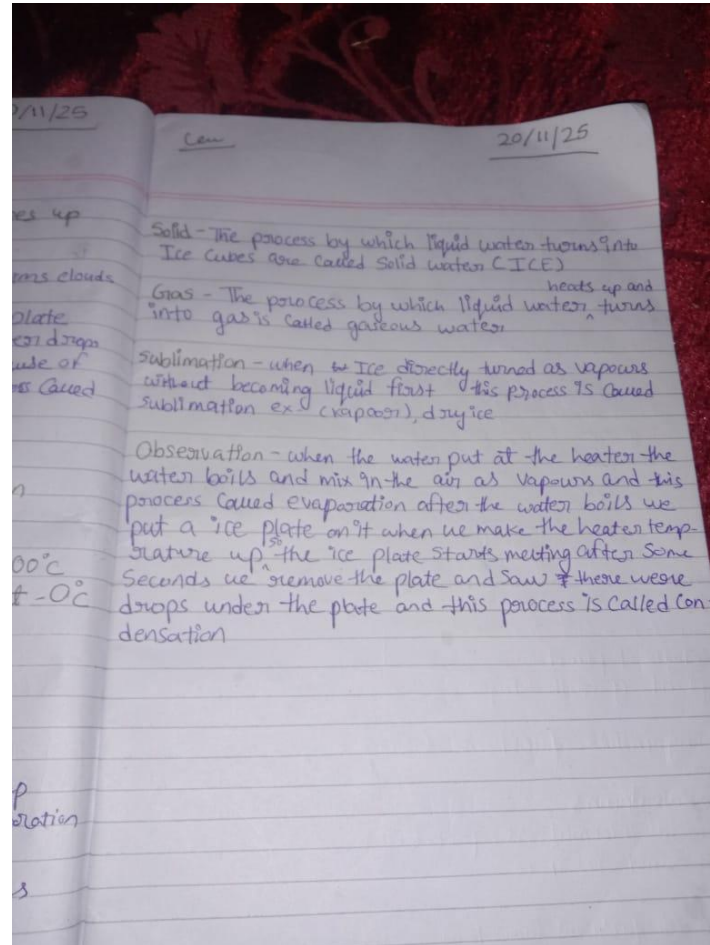 0/11/25
es up
ms clouds
plate
er drops
use of
es Called
n
00°c
t -0°c
p
oration
s
Cew
20/11/25
Solid - The process by which liquid water turns into
Ice Cubes are Called Solid water (ICE)
Gas - The process by which liquid water heats up and turns
into gas is Called gaseous water
Sublimation - when Ice directly turned as vapours
without becoming liquid first this process is Called
sublimation ex - (kapoor), dry ice
Observation - when the water put at the heater the
water boils and mix in the air as vapours and this
process Called evaparation after the water boils we
put a ice plate on it when we make the heater temp-
rature up so the ice plate starts melting after some
Seconds we remove the plate and Saw there were
drops under the plate and this process is Called Con-
densation